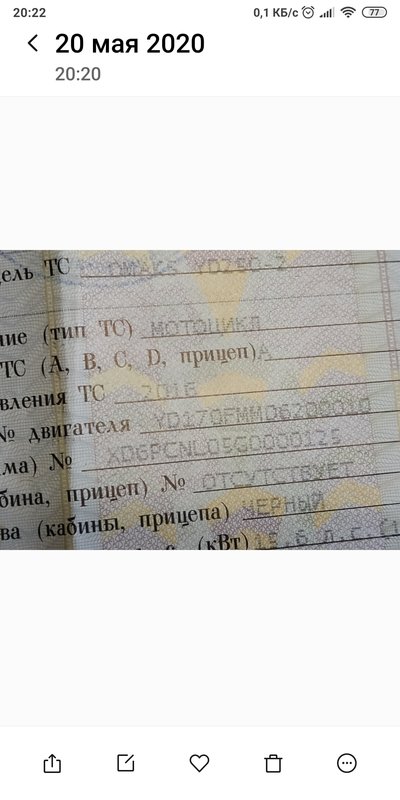 20:22 0,1 КБ/с 77
20 мая 2020
20:20
ель ТС YD250-2
ние (тип ТС) МОТОЦИКЛ
ТС (A, B, C, D, прицеп) А
вления ТС 2016
№ двигателя YD170FMMD6200010
ма) №
бина, прицеп) № ОТСУТСТВУЕТ
ва (кабины, прицепа) ЧЕРНЫЙ
(кВт) 15.6 л.с.